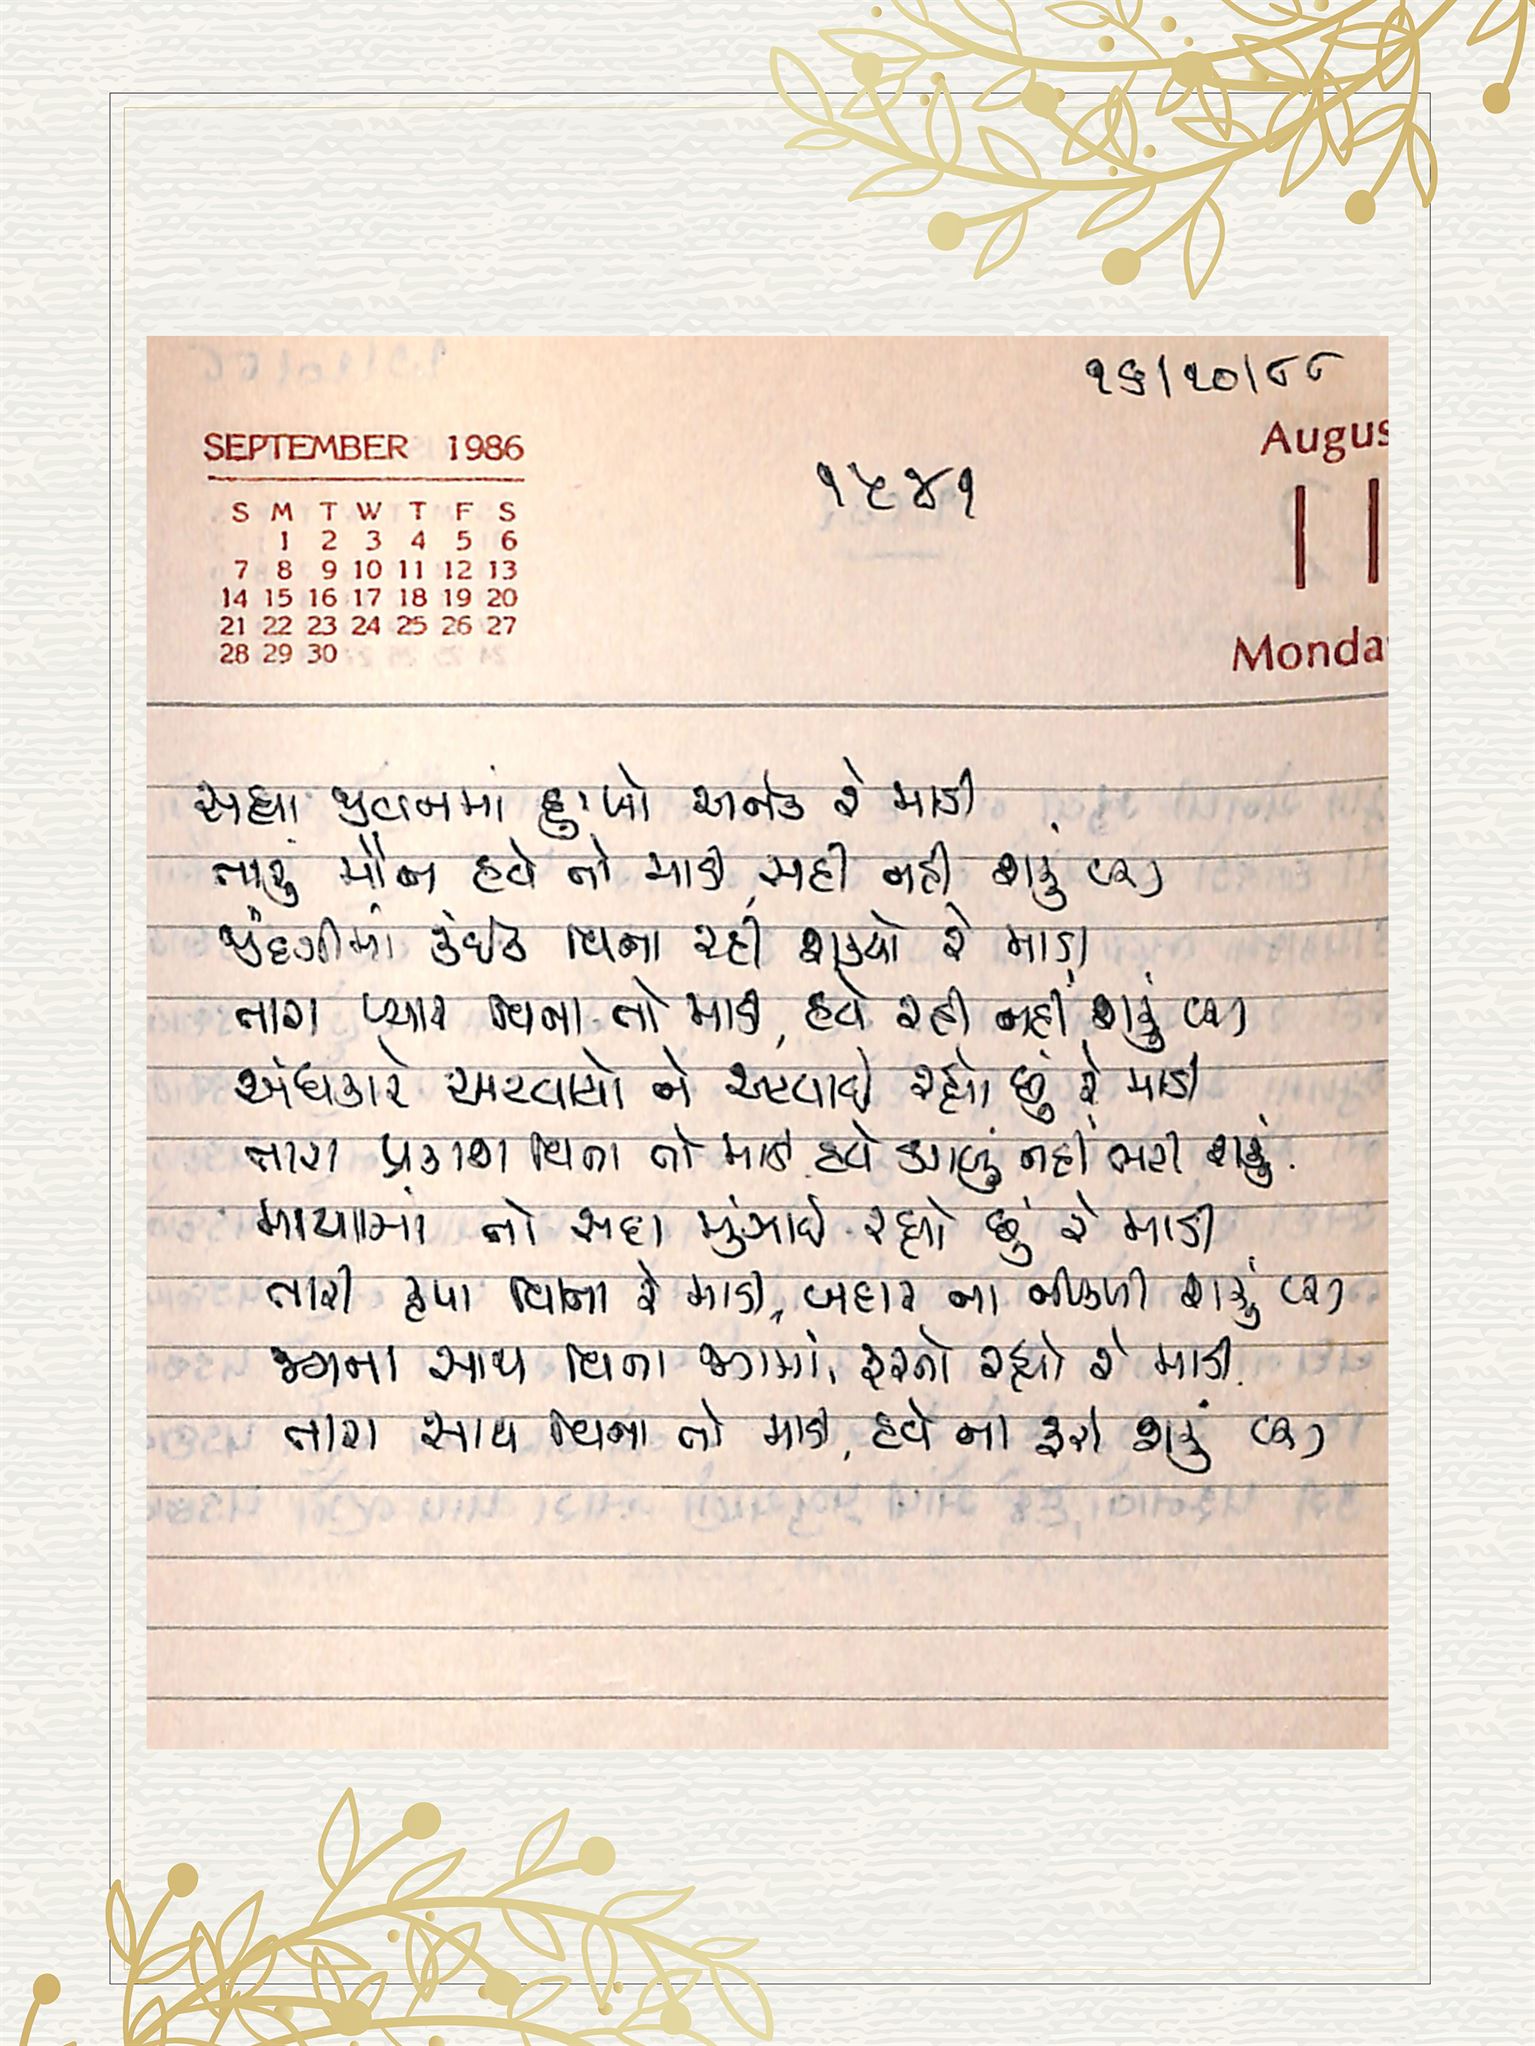 ૧૬/૧૦/૮૮
SEPTEMBER 1986
Augus
૧૫૪૧
S M T W T F S
1 2 3 4 5 6
7 8 9 10 11 12 13
14 15 16 17 18 19 20
21 22 23 24 25 26 27
28 29 30
11
Monda
સહ્યાં જીવનમાં દુઃખો અનંત રે માડી
તારું મૌન હવે તો માડી, સહી નહીં શકું (૨)
જીંદગીમાં કંઈક વિના રહી શક્યો રે માડી
તારા પ્યાર વિના તો માડી, હવે રહી નહીં શકું (૨)
અંધકારે અટવાયો ને અટવાઈ રહ્યો છું રે માડી
તારા પ્રકાશ વિના તો માડી હવે ડગલું નહીં ભરી શકું.
માયામાં તો સદા મુંઝાઈ રહ્યો છું રે માડી
તારી કૃપા વિના રે માડી, બહાર ના નીકળી શકું (૨)
જગના સાથ વિના જગમાં, ફરતો રહ્યો રે માડી.
તારા સાથ વિના તો માડી, હવે ના ફરી શકું (૨)